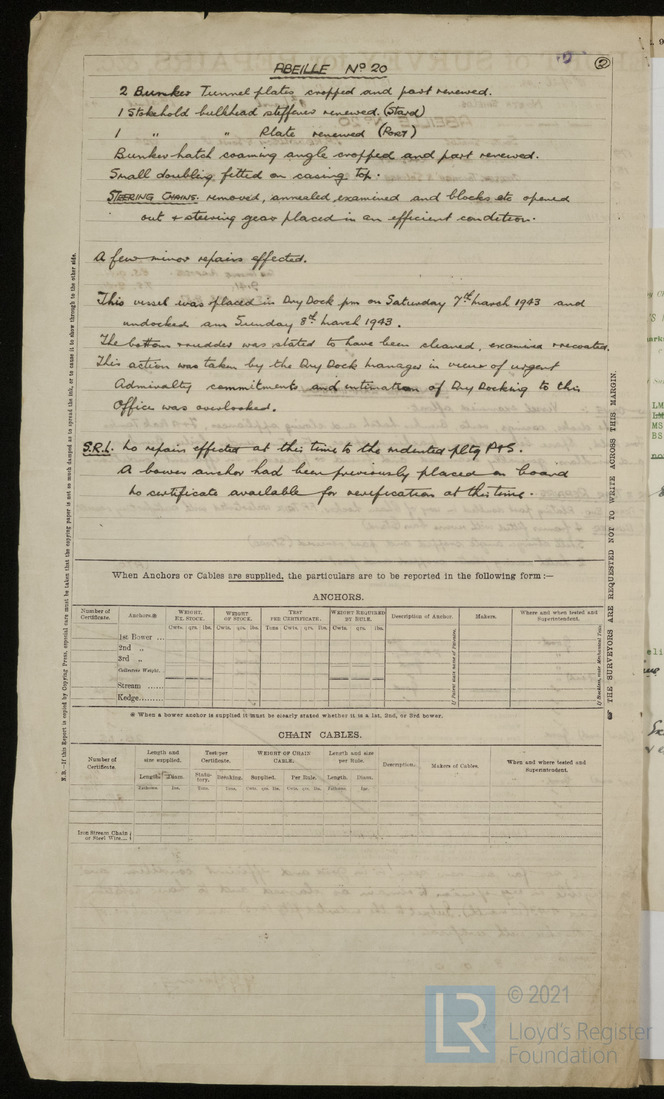 ②
ABEILLE Nº 20
2 Bunker Tunnel plates cropped and part renewed.
1 Stokehold bulkhead stiffener renewed. (Starḍ)
1 " " Plate renewed (Port)
Bunker hatch coaming angle cropped and part renewed.
Small doubling fitted on casing top.
STEERING CHAINS: removed, annealed, examined and blocks etc opened
out & steering gear placed in an efficient condition.
A few minor repairs effected.
This vessel was placed in Dry Dock pm on Saturday 7th March 1943 and
undocked am Sunday 8th March 1943.
The bottom & rudder was stated to have been cleaned, examined & recoated.
This action was taken by the Dry Dock Manager in view of urgent
Admiralty commitments and intimation of Dry Docking to this
Office was overlooked.
S.R.L. No repairs effected at this time to the indented pltg P&S.
A bower anchor had been previously placed on board
No certificate available for verification at this time.
When Anchors or Cables are supplied, the particulars are to be reported in the following form:—
ANCHORS.
Number of Certificate. Anchors.* WEIGHT, EX. STOCK. WEIGHT OF STOCK. TEST PER CERTIFICATE. WEIGHT REQUIRED BY RULE. Description of Anchor. Makers. Where and when tested and Superintendent.
Cwts. qrs. lbs. Cwts. qrs. lbs. Tons Cwts. qrs. lbs. Cwts. qrs. lbs.
1st Bower ...
2nd „
3rd „
Collective Weight.
Stream ......
Kedge........
* When a bower anchor is supplied it must be clearly stated whether it is a 1st, 2nd, or 3rd bower.
CHAIN CABLES.
Number of Certificate. Length and size supplied. Test per Certificate. WEIGHT OF CHAIN CABLE. Length and size per Rule. Description. Makers of Cables. When and where tested and Superintendent.
Length. Diam. Statutory. Breaking. Supplied. Per Rule. Length. Diam.
Fathoms. Ins. Tons. Tons. Cwts. qrs. lbs. Cwts. qrs. lbs. Fathoms. Ins.
Iron Stream Chain
or Steel Wire...
N.B.—If this Report is copied by Copying Press, especial care must be taken that the copying paper is not so much damped as to spread the ink, or to cause it to show through to the other side.
THE SURVEYORS ARE REQUESTED NOT TO WRITE ACROSS THIS MARGIN.
LR
© 2021
Lloyd's Register
Foundation